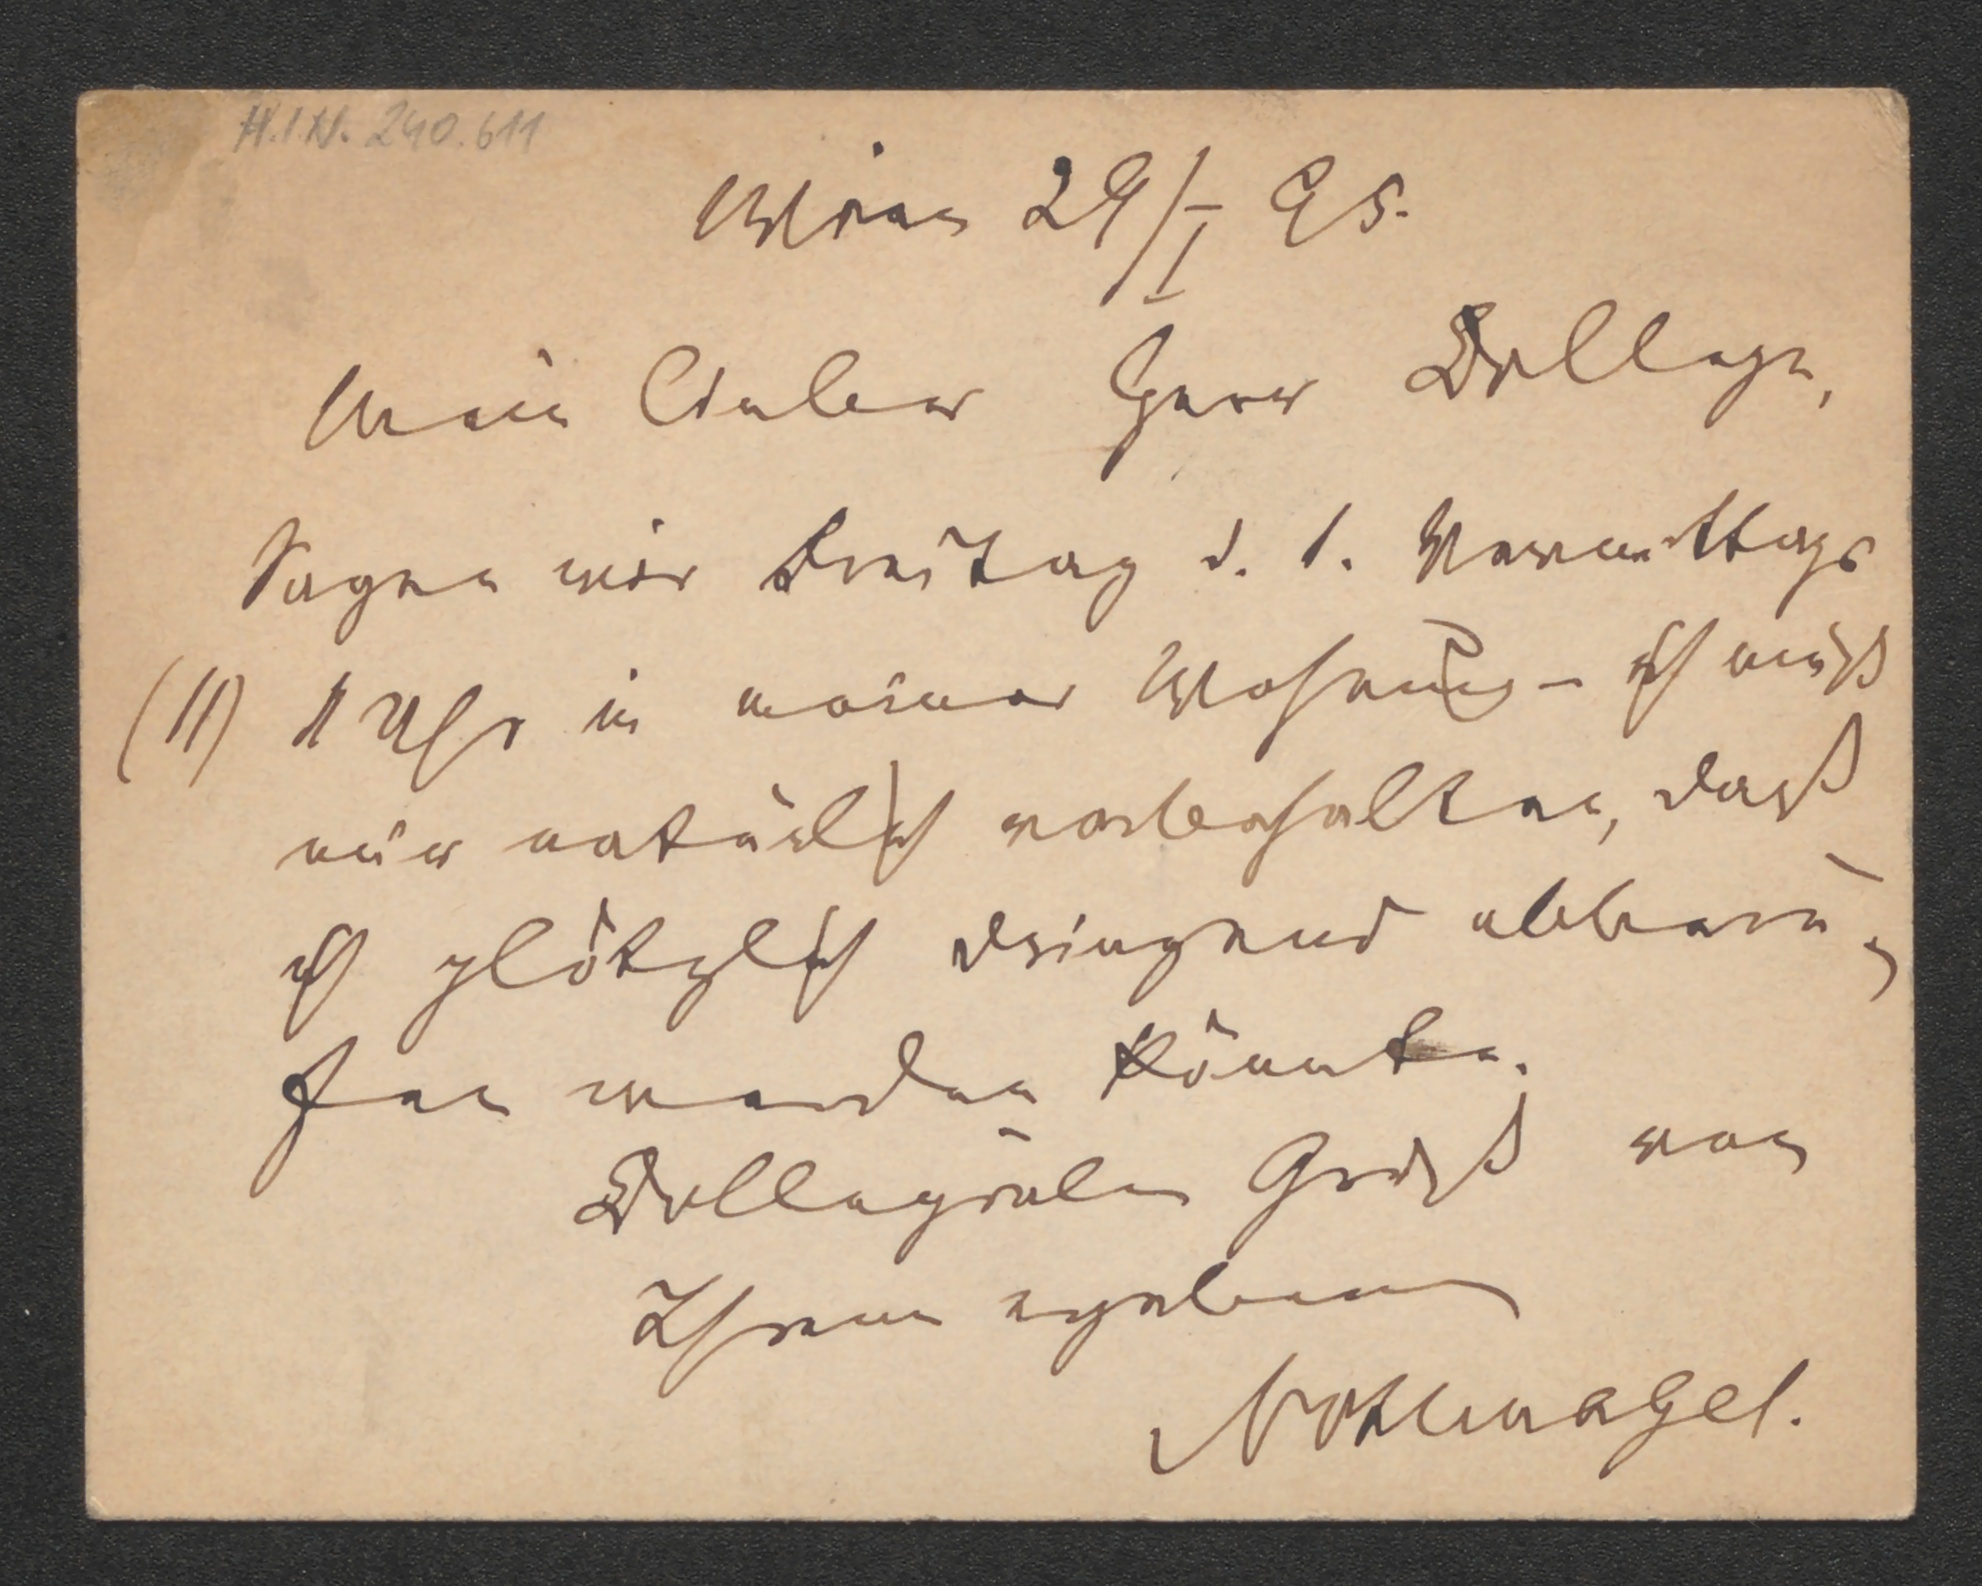 H.I.N. 240.611
Wien 29/I 95.
Mein lieber Herr College,
Sagen wir Freitag d. 1. Vormittags
(11) 11 Uhr in meiner Wohnung – ich muß
mir natürlich vorbehalten, daß
ich plötzlich dringend abberu¬
fen werden könnte.
Collegialen Gruß von
Ihrem ergebenen
Nothnagel.